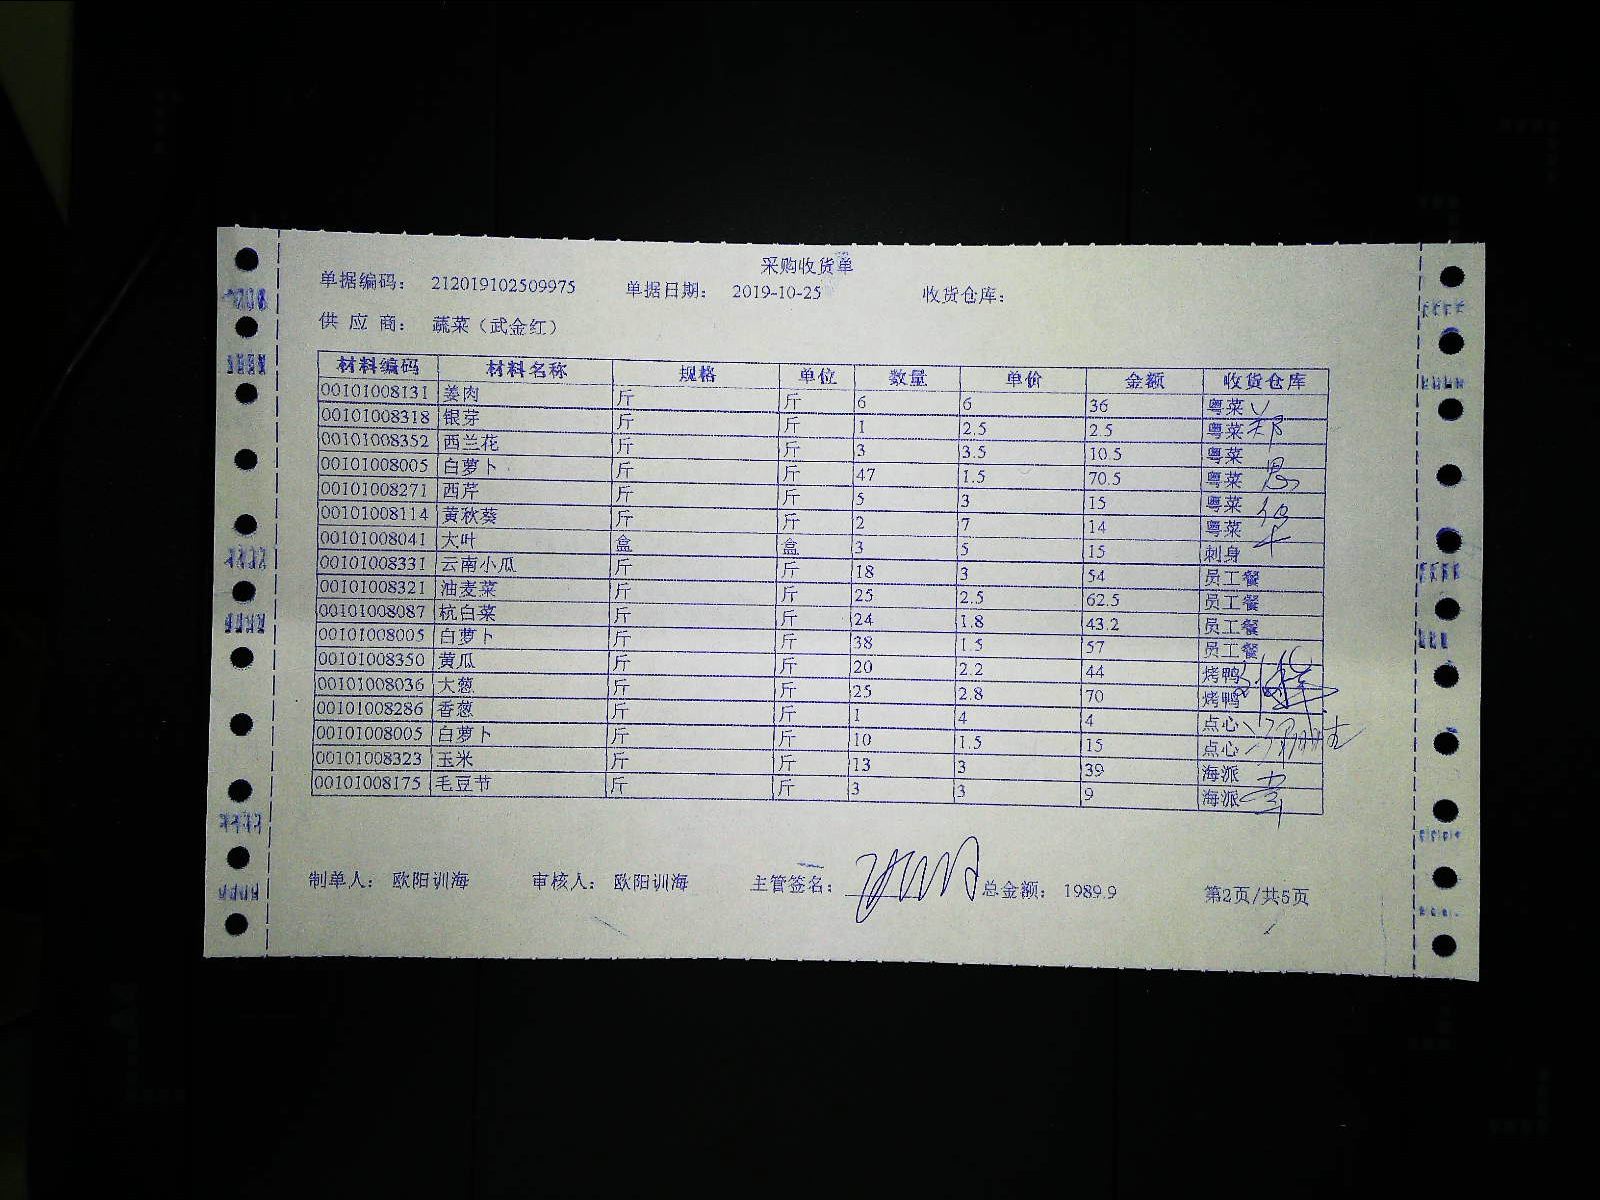 采购收货单
单据编码： 212019102509975 单据日期： 2019-10-25 收货仓库：
供 应 商： 蔬菜（武金红）
材料编码 材料名称 规格 单位 数量 单价 金额 收货仓库
00101008131 姜肉 斤 斤 6 6 36 粤菜
00101008318 银芽 斤 斤 1 2.5 2.5 粤菜
00101008352 西兰花 斤 斤 3 3.5 10.5 粤菜
00101008005 白萝卜 斤 斤 47 1.5 70.5 粤菜
00101008271 西芹 斤 斤 5 3 15 粤菜
00101008114 黄秋葵 斤 斤 2 7 14 粤菜
00101008041 大叶 盒 盒 3 5 15 刺身
00101008331 云南小瓜 斤 斤 18 3 54 员工餐
00101008321 油麦菜 斤 斤 25 2.5 62.5 员工餐
00101008087 杭白菜 斤 斤 24 1.8 43.2 员工餐
00101008005 白萝卜 斤 斤 38 1.5 57 员工餐
00101008350 黄瓜 斤 斤 20 2.2 44 烤鸭
00101008036 大葱 斤 斤 25 2.8 70 烤鸭
00101008286 香葱 斤 斤 1 4 4 点心
00101008005 白萝卜 斤 斤 10 1.5 15 点心
00101008323 玉米 斤 斤 13 3 39 海派
00101008175 毛豆节 斤 斤 3 3 9 海派
制单人： 欧阳训海 审核人： 欧阳训海 主管签名： 总金额： 1989.9 第2页/共5页